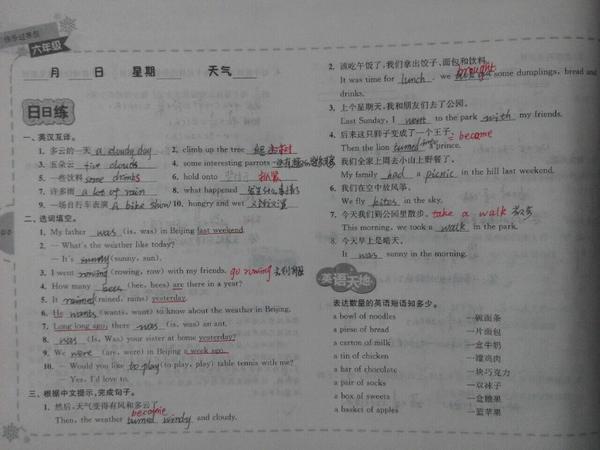 快乐过寒假
六年级
月 日 星期 天气
日日练
一、英汉互译。
1. 多云的一天 a cloudy day 2. climb up the tree 爬上树
3. 五朵云 five clouds 4. some interesting parrots
5. 一些饮料 some drinks 6. hold onto 抓紧
7. 许多雨 a lot of rain 8. what happened
9. 一场自行车表演 A bike show 10. hungry and wet 又饿又湿
二、选词填空。
1. My father was (is, was) in Beijing last weekend.
2. — What's the weather like today?
— It's sunny (sunny, sun).
3. I went rowing (rowing, row) with my friends. go rowing 去划船
4. How many bees (bee, bees) are there in a year?
5. It rained (rained, rains) yesterday.
6. He wants (wants, want) to know about the weather in Beijing.
7. Long long ago, there was (is, was) an ant.
8. Was (Is, Was) your sister at home yesterday?
9. We were (are, were) in Beijing a week ago.
10. — Would you like to play (to play, play) table tennis with me?
— Yes, I'd love to.
三、根据中文提示,完成句子。
1. 然后,天气变得有风和多云了。
become
Then, the weather turned windy and cloudy.
2. 该吃午饭了,我们拿出饺子、面包和饮料。
It was time for lunch, we brought some dumplings, bread and
drinks.
3. 上个星期天,我和朋友们去了公园。
Last Sunday, I went to the park with my friends.
4. 后来这只狮子变成了一个王子。= become
Then the lion turned into prince.
5. 我们全家上周去小山上野餐了。
My family had a picnic in the hill last weekend.
6. 我们在空中放风筝。
We fly kites in the sky.
7. 今天我们到公园里散步。take a walk 散步
This morning, we took a walk in the park.
8. 今天早上是晴天。
It was sunny in the morning.
英语天地
表达数量的英语短语知多少。
a bowl of noodles 一碗面条
a piese of bread 一片面包
a carton of milk 一盒牛奶
a tin of chicken 一罐鸡肉
a bar of chocolate 一块巧克力
a pair of socks 一双袜子
a box of sweets 一盒糖果
a basket of apples 一篮苹果